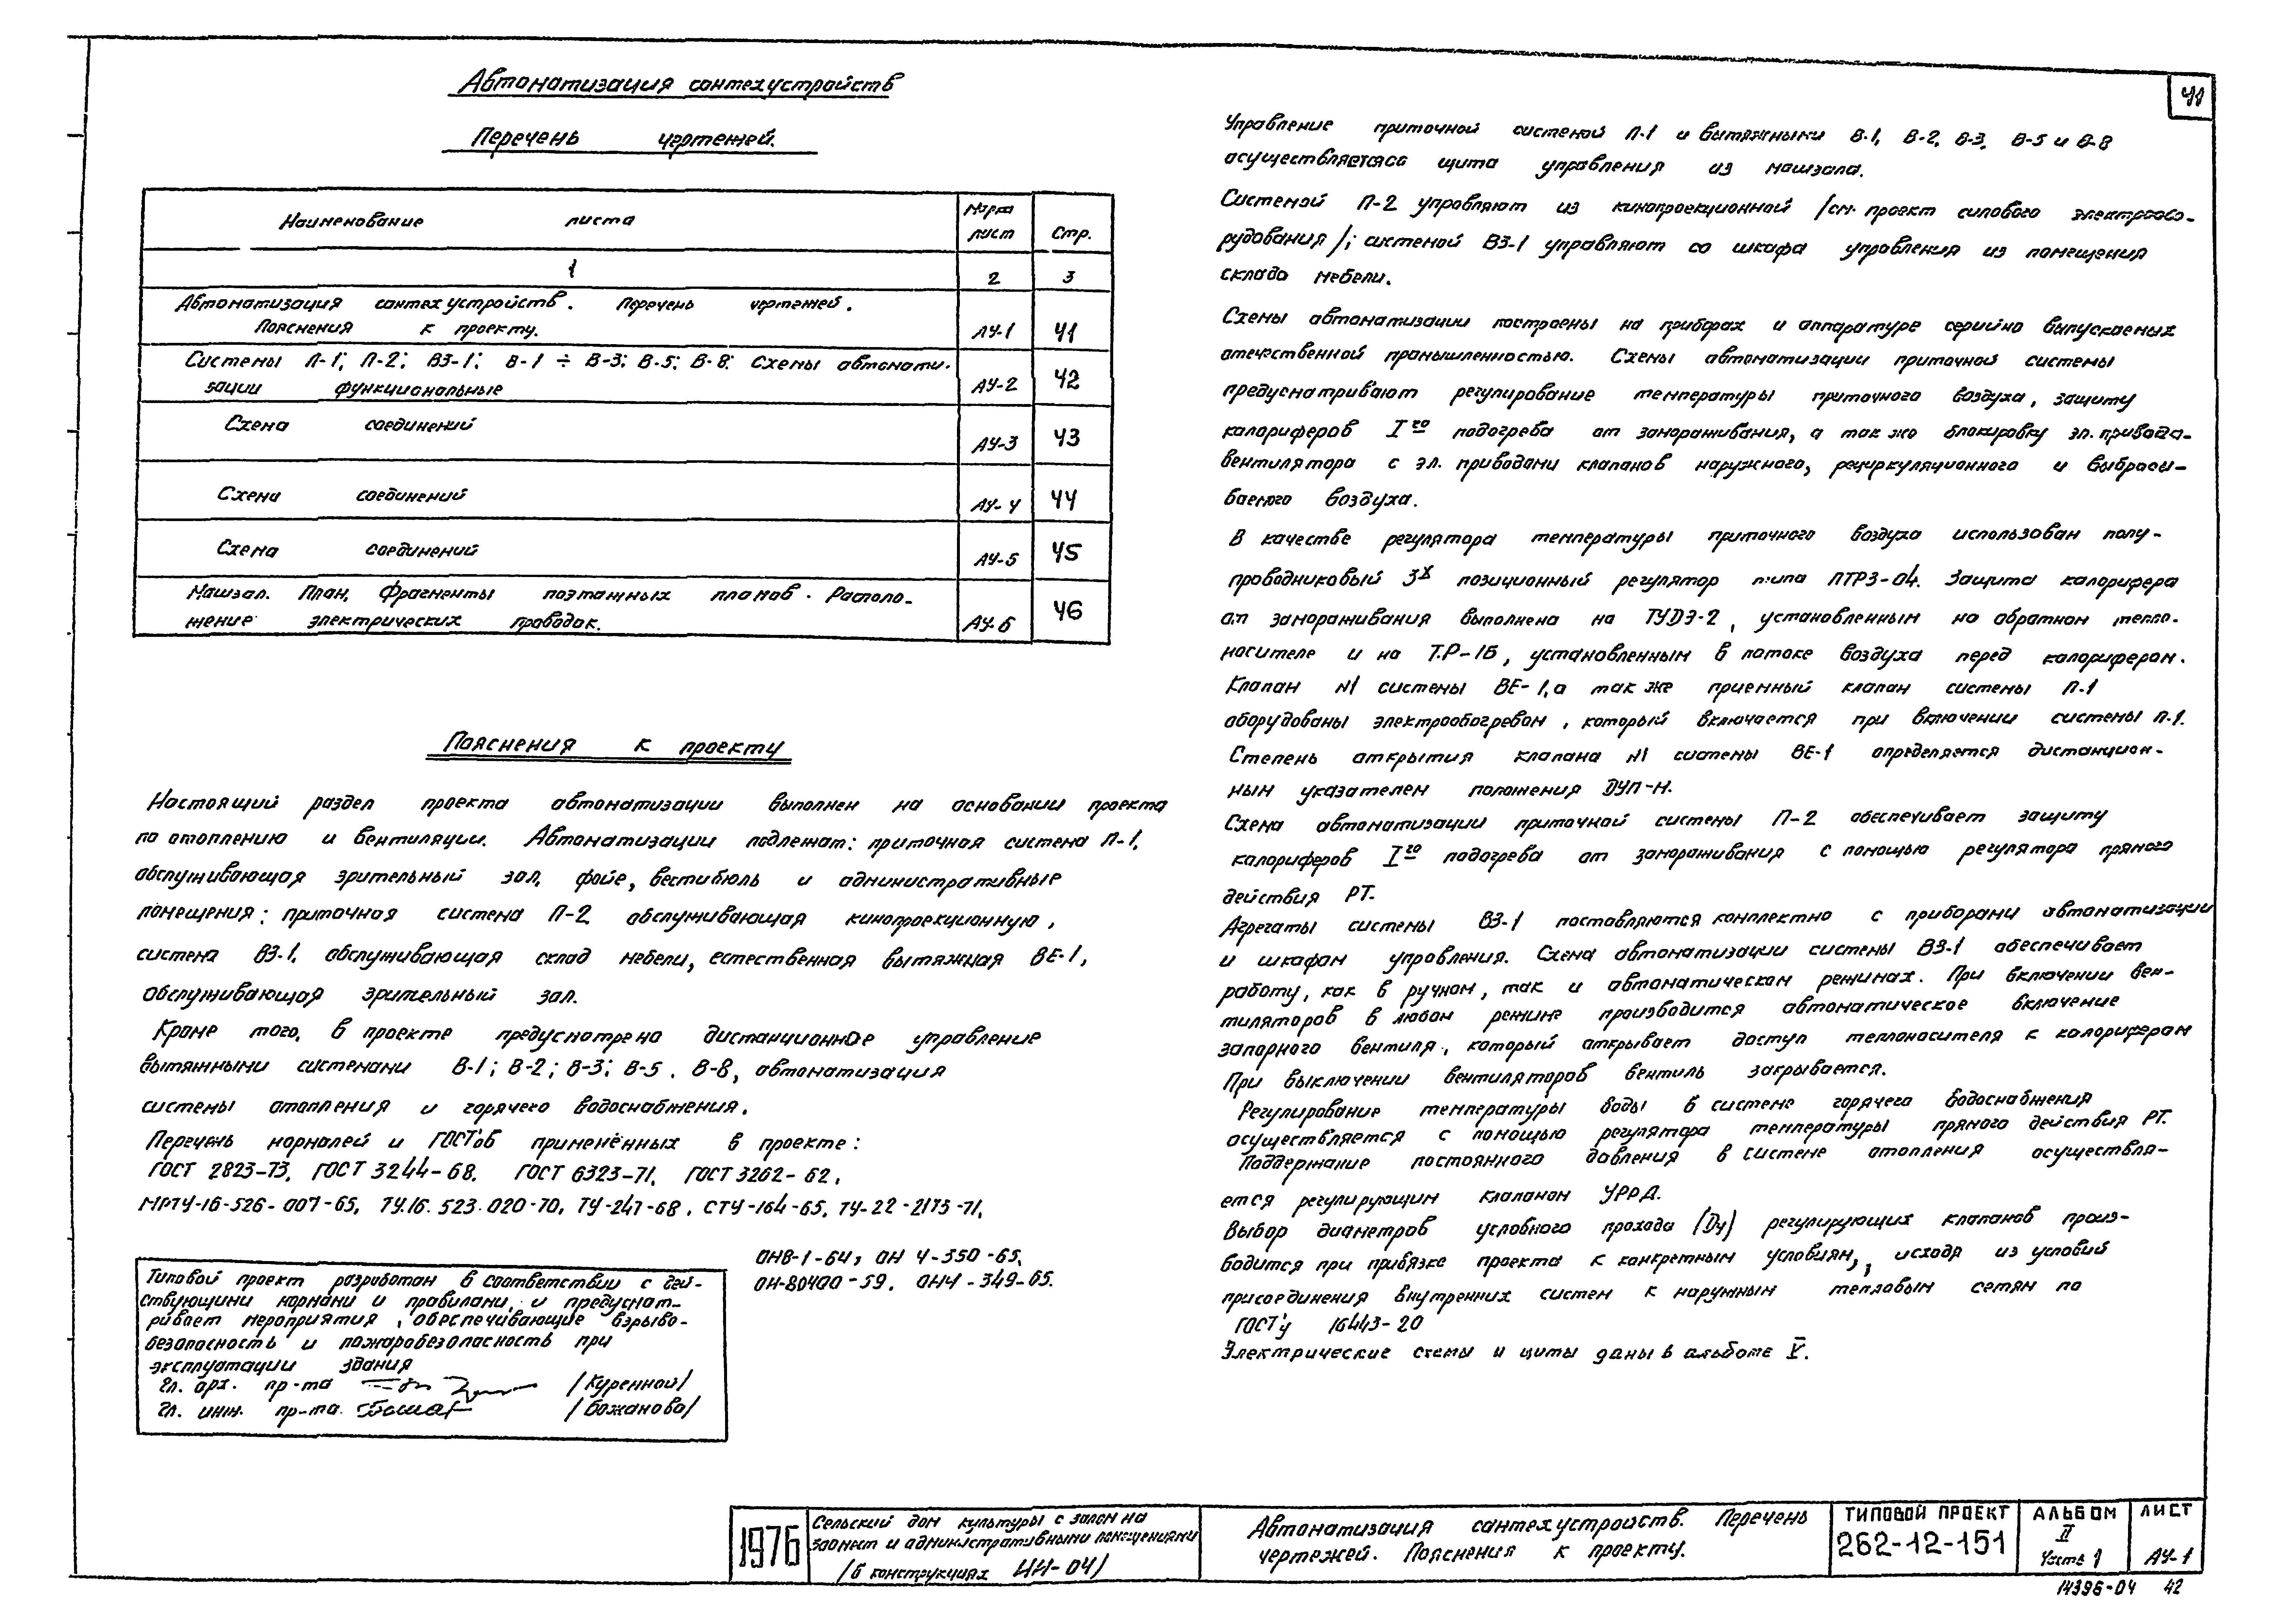 Автоматизация сантехустройств
Перечень чертежей.
Наименование листа
Марка лист
Стр.
1
2
3
Автоматизация сантехустройств. Перечень чертежей.
Пояснения к проекту.
АУ-1
41
Системы П-1; П-2; ВЗ-1; В-1 ÷ В-3; В-5; В-8. Схемы автомати-
зации функциональные
АУ-2
42
Схема соединений
АУ-3
43
Схема соединений
АУ-4
44
Схема соединений
АУ-5
45
Машзал. План. Фрагменты поэтажных планов. Располо-
жение электрических проводок.
АУ-6
46
Пояснения к проекту
Настоящий раздел проекта автоматизации выполнен на основании проекта
по отоплению и вентиляции. Автоматизации подлежат: приточная система П-1,
обслуживающая зрительный зал, фойе, вестибюль и административные
помещения; приточная система П-2 обслуживающая кинопроекционную,
система ВЗ-1, обслуживающая склад мебели, естественная вытяжная ВЕ-1,
обслуживающая зрительный зал.
Кроме того, в проекте предусмотрено дистанционное управление
вытяжными системами В-1; В-2; В-3; В-5. В-8, автоматизация
системы отопления и горячего водоснабжения.
Перечень нормалей и ГОСТ'ов применённых в проекте:
ГОСТ 2823-73, ГОСТ 3244-68. ГОСТ 6323-71, ГОСТ 3262-62,
МРТУ-16-526-007-65, ТУ.16.523.020-70, ТУ-247-68, СТУ-164-65, ТУ-22-2175-71,
ОНВ-1-64, ОН 4-350-65,
ОН-80400-59. ОН4-349-65.
Типовой проект разработан в соответствии с дей-
ствующими нормами и правилами, и предусмат-
ривает мероприятия, обеспечивающие взрыво-
безопасность и пожаробезопасность при
эксплуатации здания
Гл. арх. пр-та /Куренной/
Гл. инж. пр-та /Божанова/
41
Управление приточной системой П-1 и вытяжными В-1, В-2, В-3, В-5 и В-8
осуществляется со щита управления из машзала.
Системой П-2 управляют из кинопроекционной /см. проект силового электрообо-
рудования/; системой ВЗ-1 управляют со шкафа управления из помещения
склада мебели.
Схемы автоматизации построены на приборах и аппаратуре серийно выпускаемых
отечественной промышленностью. Схемы автоматизации приточной системы
предусматривают регулирование температуры приточного воздуха, защиту
калориферов I го подогрева от замораживания, а так же блокировку эл. привода
вентилятора с эл. приводами клапанов наружного, рециркуляционного и выбрасы-
ваемого воздуха.
В качестве регулятора температуры приточного воздуха использован полу-
проводниковый 3х позиционный регулятор типа ПТРЗ-04. Защита калорифера
от замораживания выполнена на ТУДЭ-2, установленным на обратном тепло-
носителе и на Т.Р-1Б, установленным в потоке воздуха перед калорифером.
Клапан N1 системы ВЕ-1, а так же приемный клапан системы П-1
оборудованы электрообогревом, который включается при включении системы П-1.
Степень открытия клапана N1 системы ВЕ-1 определяется дистанцион-
ным указателем положения ДУП-М.
Схема автоматизации приточной системы П-2 обеспечивает защиту
калориферов I го подогрева от замораживания с помощью регулятора прямого
действия РТ.
Агрегаты системы ВЗ-1 поставляются комплектно с приборами автоматизации
и шкафом управления. Схема автоматизации системы ВЗ-1 обеспечивает
работу, как в ручном, так и автоматическом режимах. При включении вен-
тиляторов в любом режиме производится автоматическое включение
запорного вентиля, который открывает доступ теплоносителя к калориферам
При выключении вентиляторов вентиль закрывается.
Регулирование температуры воды в системе горячего водоснабжения
осуществляется с помощью регулятора температуры прямого действия РТ.
Поддержание постоянного давления в системе отопления осуществля-
ется регулирующим клапаном УРРД.
Выбор диаметров условного прохода (Dу) регулирующих клапанов произ-
водится при привязке проекта к конкретным условиям, исходя из условий
присоединения внутренних систем к наружным тепловым сетям по
ГОСТ'у 16443-20
Электрические схемы и щиты даны в альбоме V.
1976
Сельский дом культуры с залом на
мест и административными помещениями
/в конструкциях ИИ-04/
Автоматизация сантехустройств. Перечень
чертежей. Пояснения к проекту.
ТИПОВОЙ ПРОЕКТ
262-12-151
АЛЬБОМ
II
Часть 1
ЛИСТ
АУ-1
14396-04 42